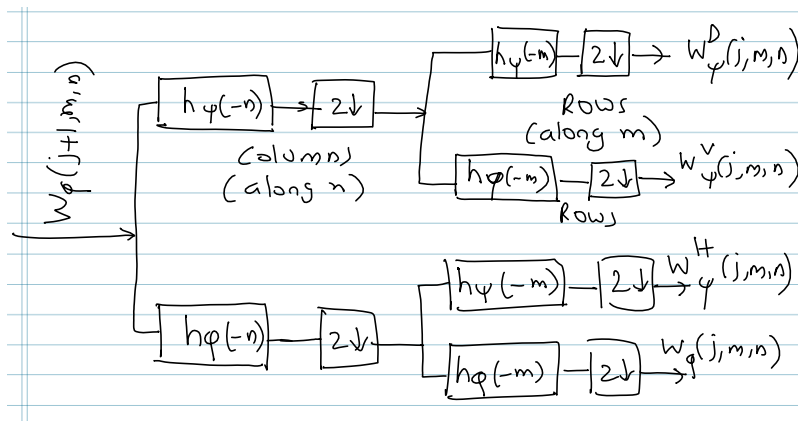 Wφ(j+1,m,n)
hψ(-n)
2↓
COLUMNS
(along n)
hψ(-m)
2↓
W^D_ψ(j,m,n)
ROWS
(along m)
hφ(-m)
2↓
W^V_ψ(j,m,n)
ROWS
hφ(-n)
2↓
hψ(-m)
2↓
W^H_ψ(j,m,n)
hφ(-m)
2↓
Wφ(j,m,n)